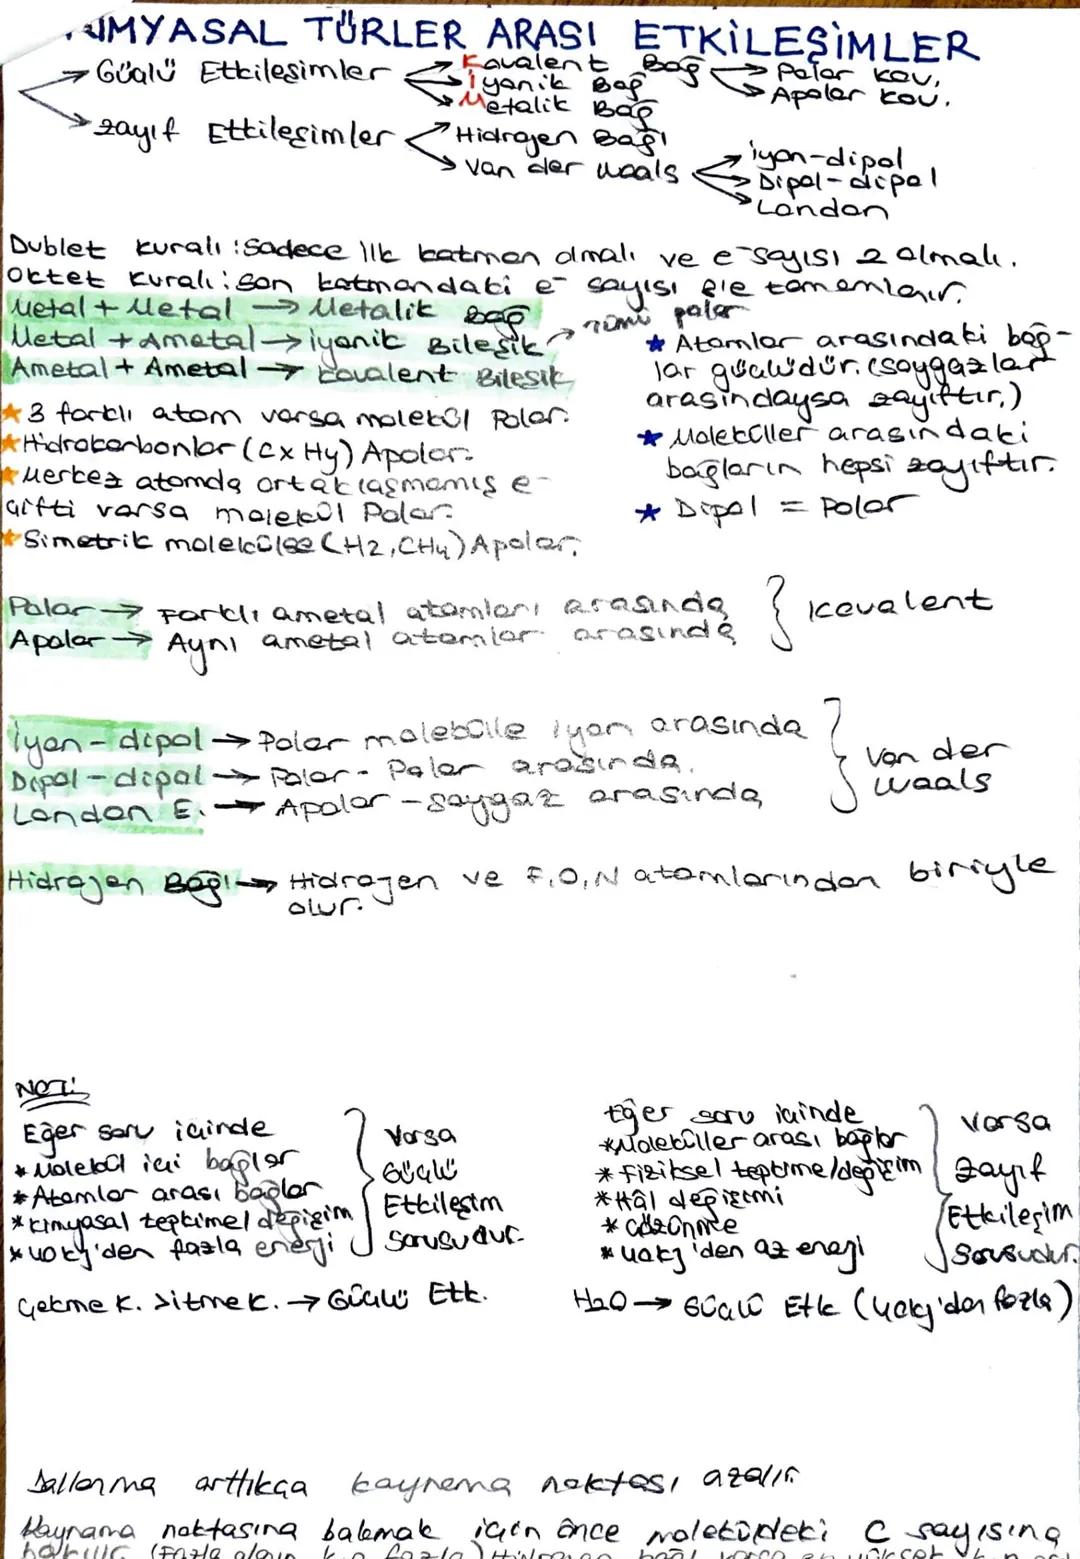 KİMYASAL TÜRLER ARASI ETKİLEŞİMLER
Güçlü Etkileşimler
Kovalent Bağ
Polar kov.
Apolar kov.
İyonik Bağ
Metalik Bağ
Zayıf Etkileşimler
Hidrojen Bağı
Van der waals
iyon-dipol
Dipol-dipol
London
Dublet kuralı: Sadece ilk katman olmalı ve e⁻ sayısı 2 olmalı.
Oktet kuralı: Son katmandaki e⁻ sayısı 8'e tamamlanır.
Metal + Metal → Metalik Bağ
Metal + Ametal → iyonik Bileşik → tümü polar
Ametal + Ametal → kovalent Bileşik
★ 3 farklı atom varsa molekül Polar.
★ Hidrokarbonlar (CxHy) Apolar.
★ Merkez atomda ortaklaşmamış e⁻
çifti varsa molekül Polar.
★ Simetrik molekülse (H2, CH4) Apolar.
★ Atomlar arasındaki bağ-
lar güçlüdür. (soygazlar
arasındaysa zayıftır.)
★ Moleküller arasındaki
bağların hepsi zayıftır.
★ Dipol = Polar
Polar → Farklı ametal atomları arasında
Apolar → Aynı ametal atomlar arasında
} Kovalent
İyon-dipol → Polar molekülle iyon arasında
Dipol-dipol → Polar-Polar arasında.
London E. → Apolar-soygaz arasında
} Van der
waals
Hidrojen Bağı → Hidrojen ve F,O,N atomlarından biriyle
olur.
NOT:
Eğer soru içinde
* Molekül içi bağlar
* Atomlar arası bağlar
* kimyasal tepkime/değişim
* 40kj'den fazla enerji
} Varsa
Güçlü
Etkileşim
Sorusudur.
Eğer soru içinde
* Moleküller arası bağlar
* Fiziksel tepkime/değişim
* Hâl değişimi
* Çözünme
* 40kj'den az enerji
} Varsa
Zayıf
Etkileşim
Sorusudur.
Çekme K. > itme K. → Güçlü Etk.
H2O → Güçlü Etk (40kj'den fazla)
Dallanma arttıkça kaynama noktası azalır.
Kaynama noktasına bakmak için önce moleküldeki C sayısına